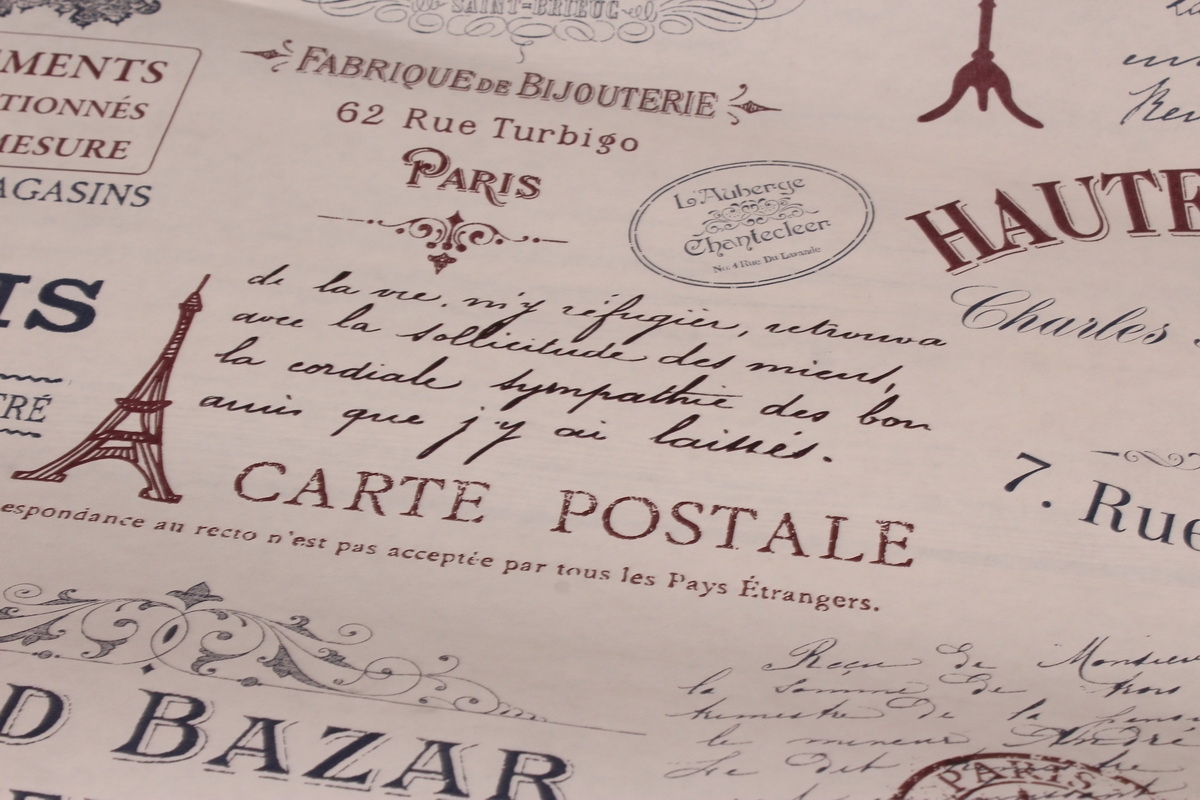 SAINT-BRIEUC
FABRIQUE DE BIJOUTERIE
62 Rue Turbigo
PARIS
MENTS
TIONNÉS
MESURE
AGASINS
L'Auberge
Chantecleer
No. 4 Rue Du Lavande
HAUTE
Charles
IS
TRÉ
de la vie, m'y réfugier, retrouva
avec la sollicitude des miens,
la cordiale sympathie des bon
amis que j'y ai laissés.
CARTE POSTALE
espondance au recto n'est pas acceptée par tous les Pays Étrangers.
7. Rue
D BAZAR
Reçu de Monsieur
la somme de trois
trimestre de la pens
le mineur André
PARIS